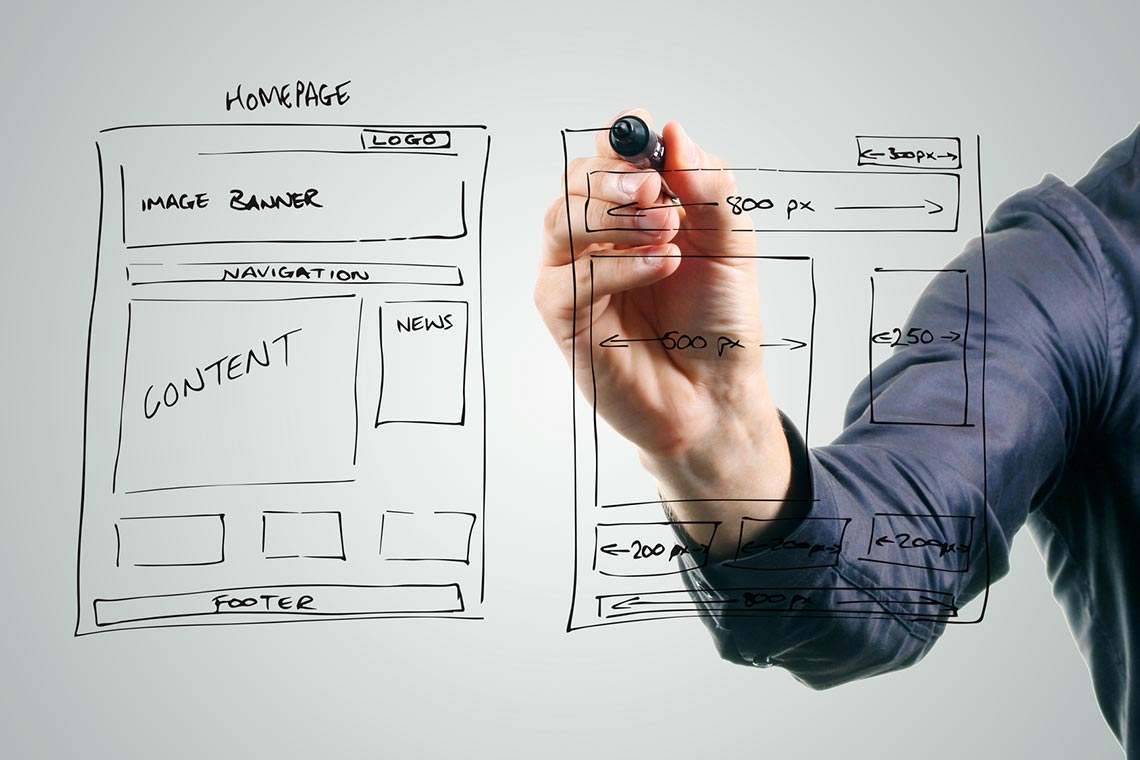 HOMEPAGE
LOGO
IMAGE BANNER
NAVIGATION
CONTENT
NEWS
FOOTER
300px
800 px
500 px
250
200 px
200px
200px
800 px